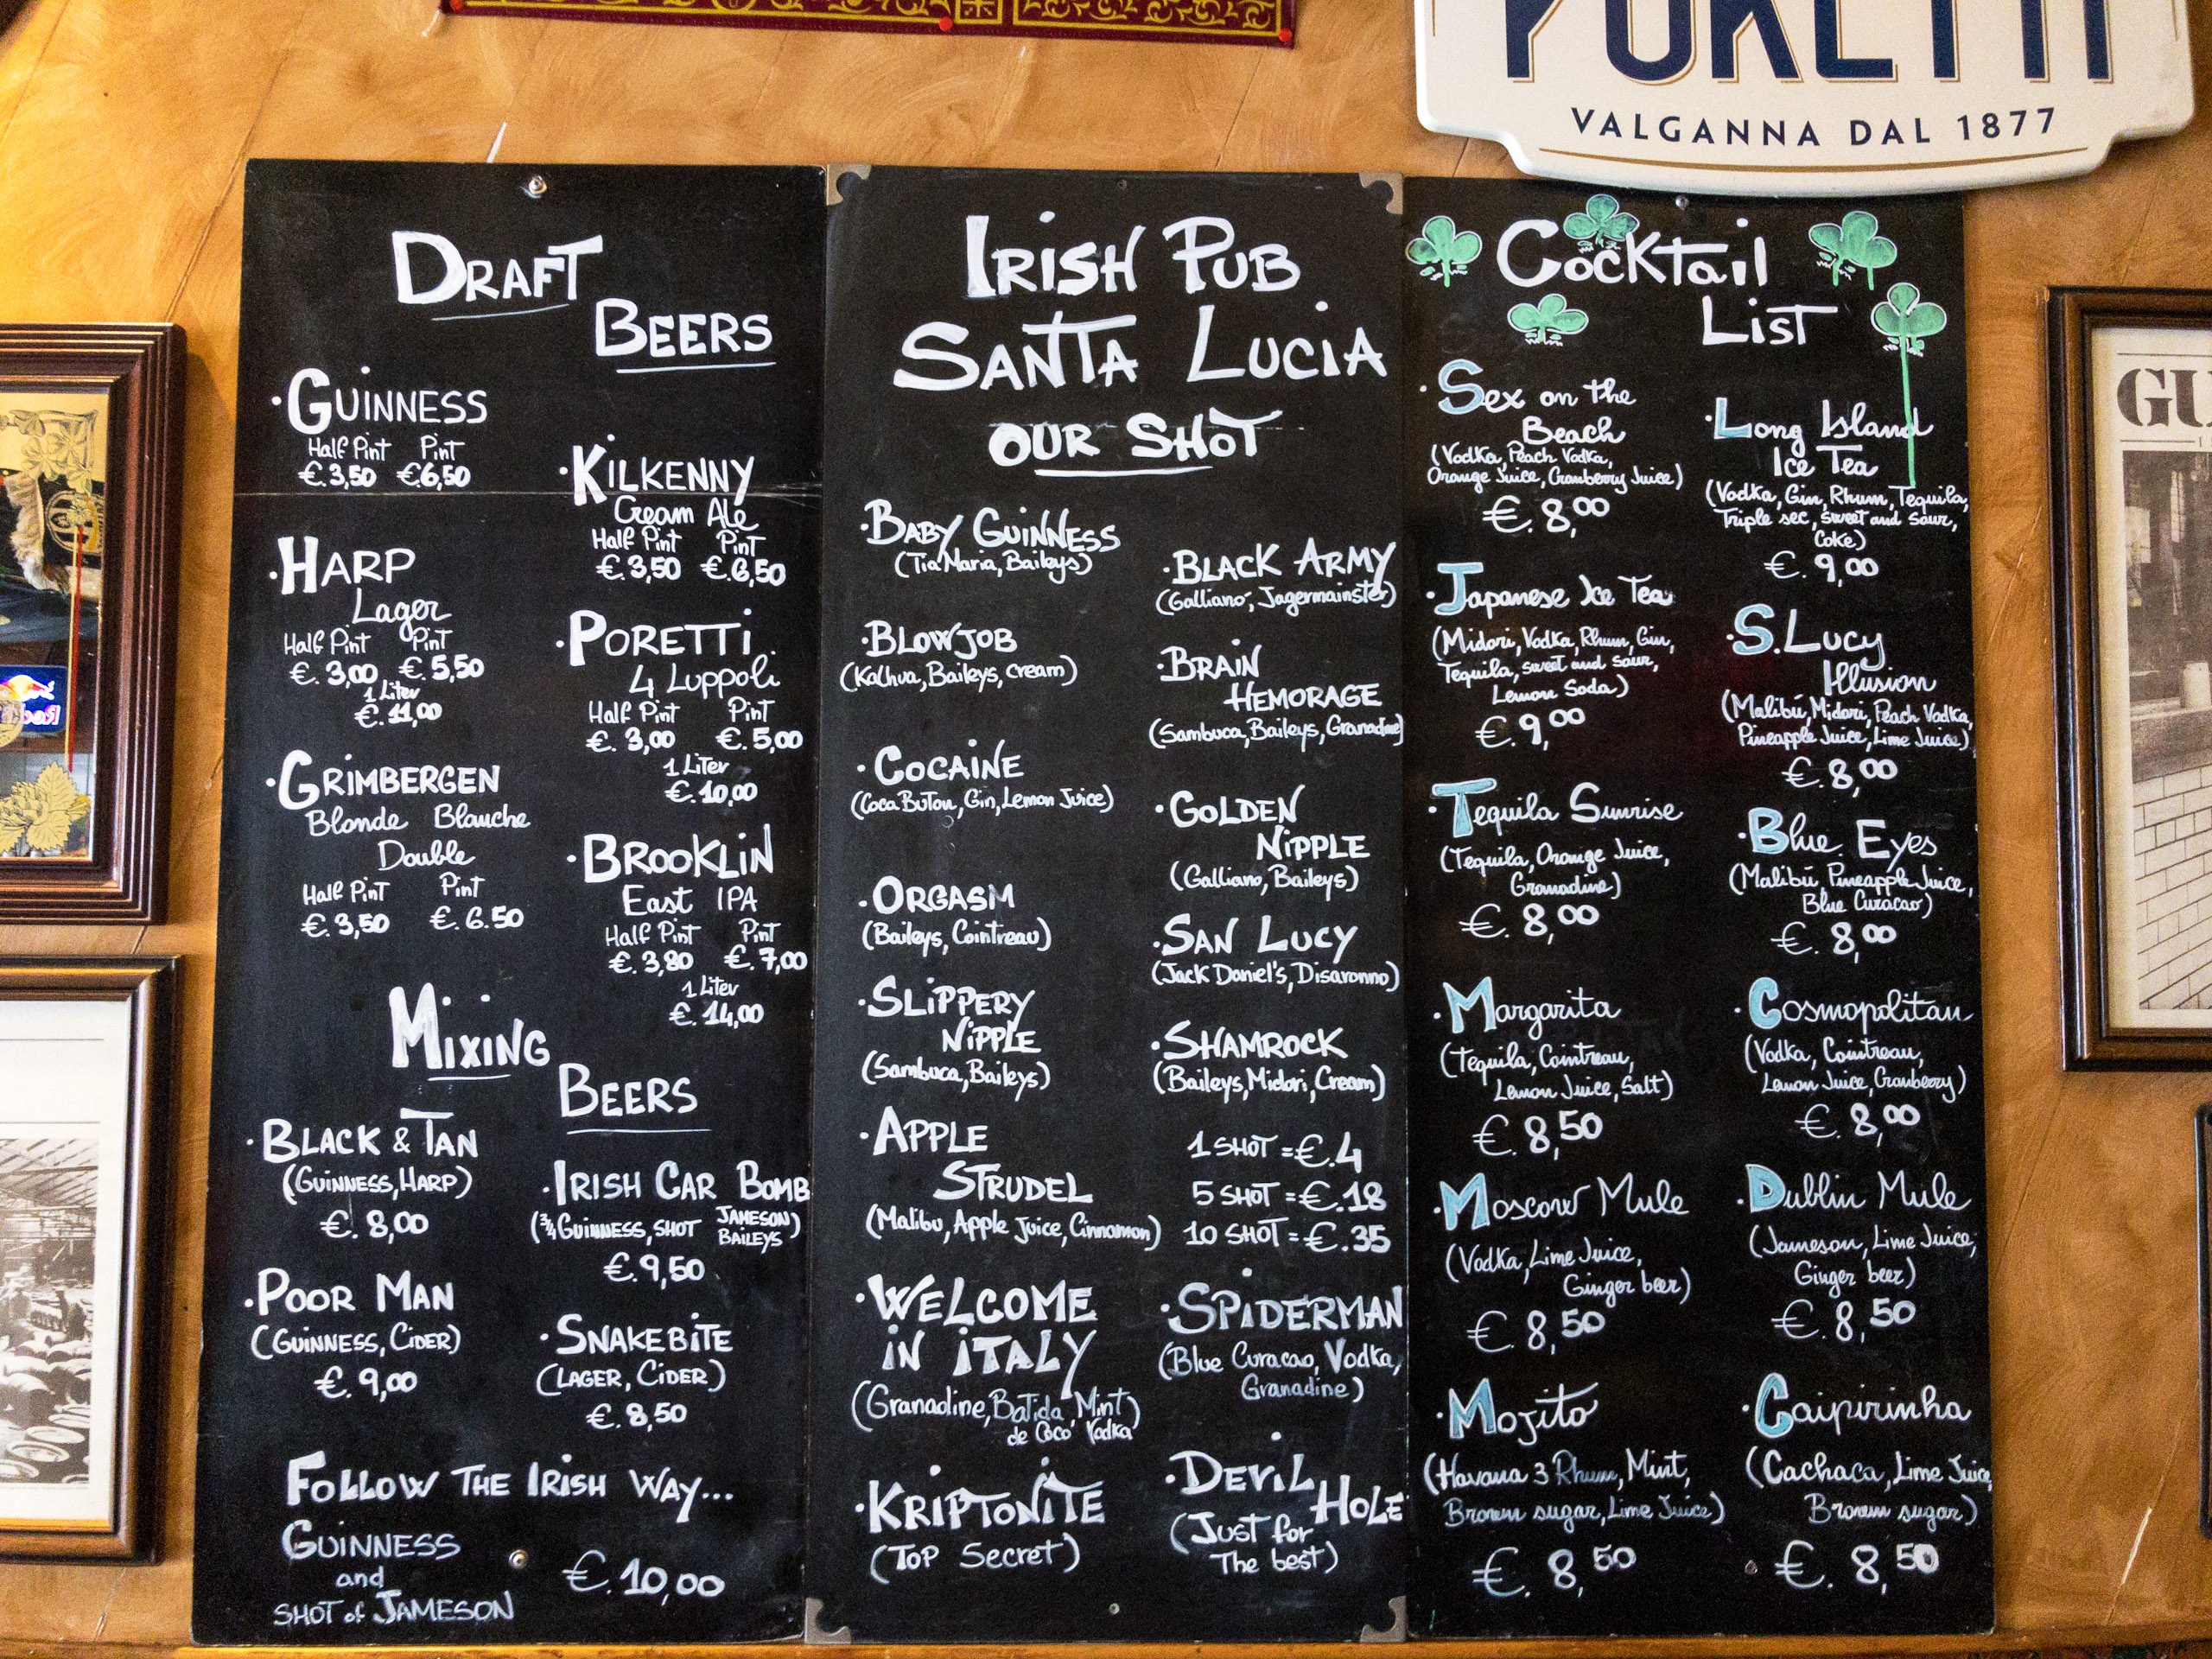 VALGANNA DAL 1877
DRAFT
BEERS
· GUINNESS
Half Pint Pint
€.3,50 €6,50
· HARP
Lager
Half Pint Pint
€.3,00 €.5,50
1 Liter
€.11,00
· GRIMBERGEN
Blonde Blanche
Double
Half Pint Pint
€.3,50 €.6.50
· KILKENNY
Cream Ale
Half Pint Pint
€.3,50 €.6,50
· PORETTI
4 Luppoli
Half Pint Pint
€.3,00 €.5,00
1 Liter
€.10,00
· BROOKLIN
East IPA
Half Pint Pint
€.3,80 €.7,00
1 Liter
€.14,00
MIXING
BEERS
· BLACK & TAN
(GUINNESS, HARP)
€.8,00
· POOR MAN
(GUINNESS, CIDER)
€.9,00
· IRISH CAR BOMB
(¾ GUINNESS, SHOT JAMESON)
BAILEYS
€.9,50
· SNAKEBITE
(LAGER, CIDER)
€.8,50
FOLLOW THE IRISH WAY...
GUINNESS
and
SHOT of JAMESON
€.10,00
IRISH PUB
SANTA LUCIA
OUR SHOT
· BABY GUINNESS
(Tia Maria, Baileys)
· BLOWJOB
(Kalhua, Baileys, cream)
· COCAINE
(Coca Buton, Gin, Lemon Juice)
· ORGASM
(Baileys, Cointreau)
· SLIPPERY
NIPPLE
(Sambuca, Baileys)
· APPLE
STRUDEL
(Malibu, Apple juice, Cinnamon)
· WELCOME
IN ITALY
(Granadine, Batida Mint)
de Coco Vodka
· KRIPTONITE
(Top Secret)
· BLACK ARMY
(Galliano, Jagermainster)
· BRAIN
HEMORAGE
(Sambuca, Baileys, Granadine)
· GOLDEN
NIPPLE
(Galliano, Baileys)
· SAN LUCY
(Jack Daniel's, Disaronno)
· SHAMROCK
(Baileys, Midori, Cream)
1 SHOT = €.4
5 SHOT = €.18
10 SHOT = €.35
· SPIDERMAN
(Blue Curacao, Vodka,
Granadine)
· DEVIL
HOLE
(Just for
The best)
Cocktail
List
· Sex on the
Beach
(Vodka, Peach Vodka,
Orange Juice, Cranberry Juice)
€.8,00
· Japanese Ice Tea
(Midori, Vodka, Rhum, Gin,
Tequila, sweet and sour,
Lemon Soda)
€.9,00
· Tequila Sunrise
(Tequila, Orange Juice,
Granadine)
€.8,00
· Margarita
(Tequila, Cointreau,
Lemon Juice, Salt)
€.8,50
· Moscow Mule
(Vodka, Lime Juice,
Ginger beer)
€.8,50
· Mojito
(Havana 3 Rhum, Mint,
Brown sugar, Lime Juice)
€.8,50
· Long Island
Ice Tea
(Vodka, Gin, Rhum, Tequila,
Triple sec, sweet and sour,
Coke)
€.9,00
· S.Lucy
Illusion
(Malibú, Midori, Peach Vodka,
Pineapple Juice, Lime Juice)
€.8,00
· Blue Eyes
(Malibú, Pineapple Juice,
Blue Curacao)
€.8,00
· Cosmopolitan
(Vodka, Cointreau,
Lemon Juice, Cranberry)
€.8,00
· Dublin Mule
(Jameson, Lime Juice,
Ginger beer)
€.8,50
· Caipirinha
(Cachaca, Lime Juice,
Brown sugar)
€.8,50
GU